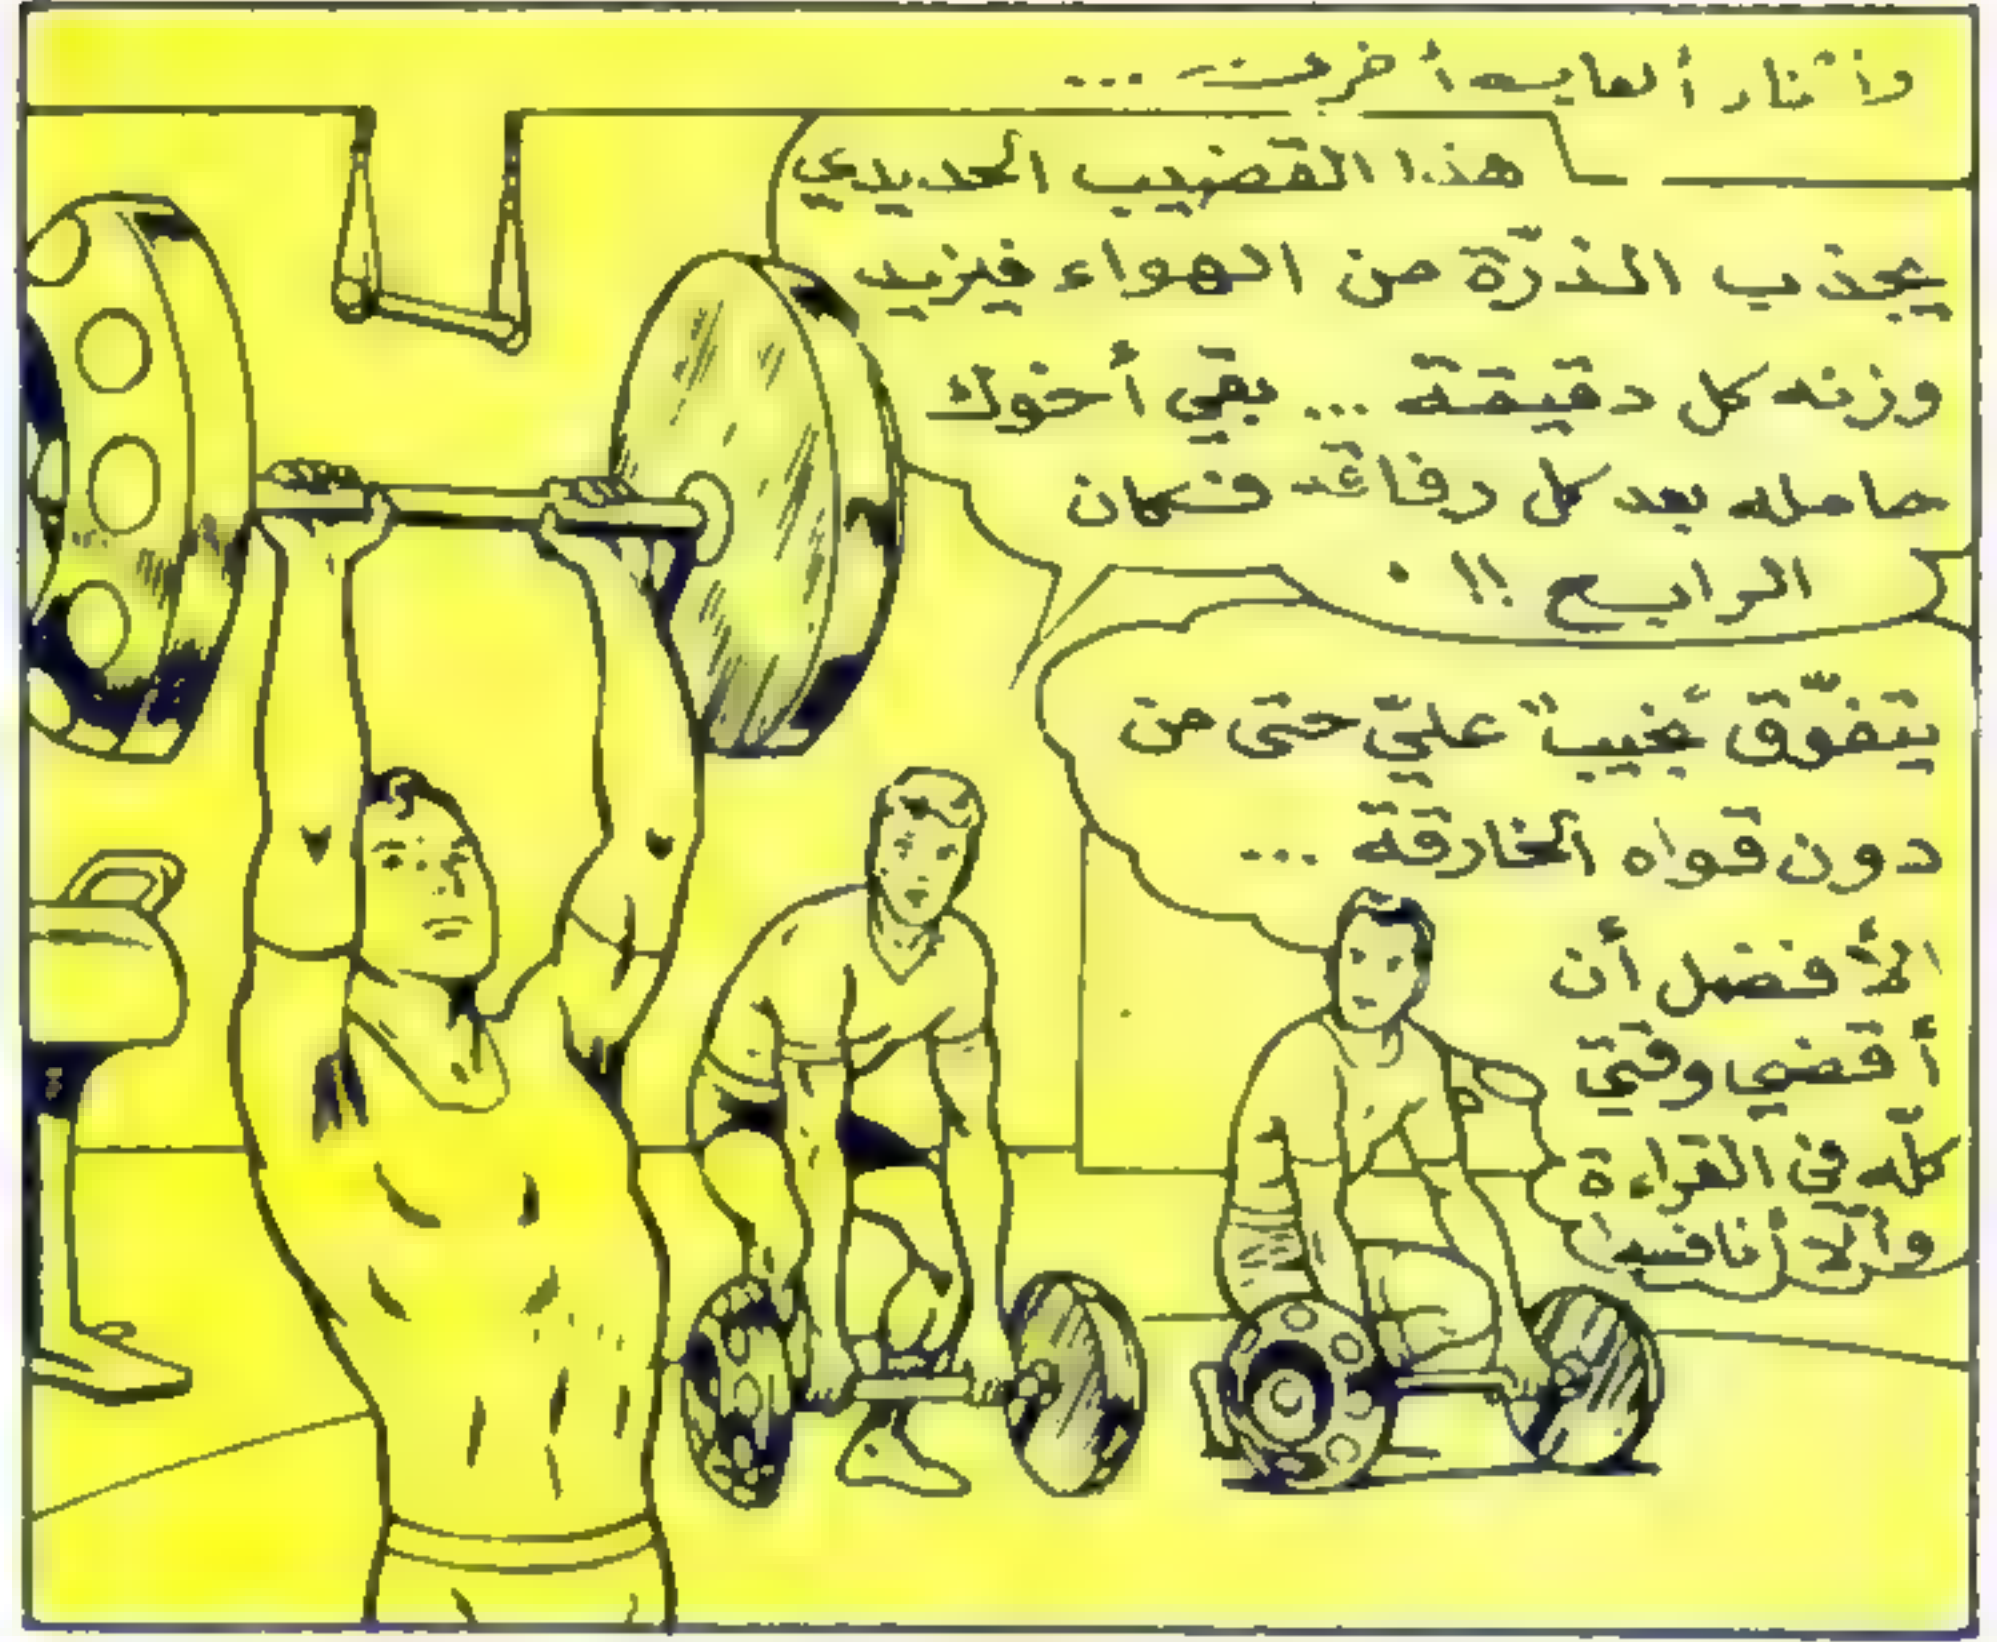 وأثناء ألعاب أخرى ...
هذا القضيب الحديدي
يجذب الذرّة من الهواء فيزيد
وزنه كل دقيقة ... بقي أخوك
حامله بعد كل رفاقه فكان
الرابح !!
يتفوّق "نجيب" عليّ حتى من
دون قواه الخارقة ...
الأفضل أن
أقضي وقتي
كلّه في القراءة
وألا أنافسه